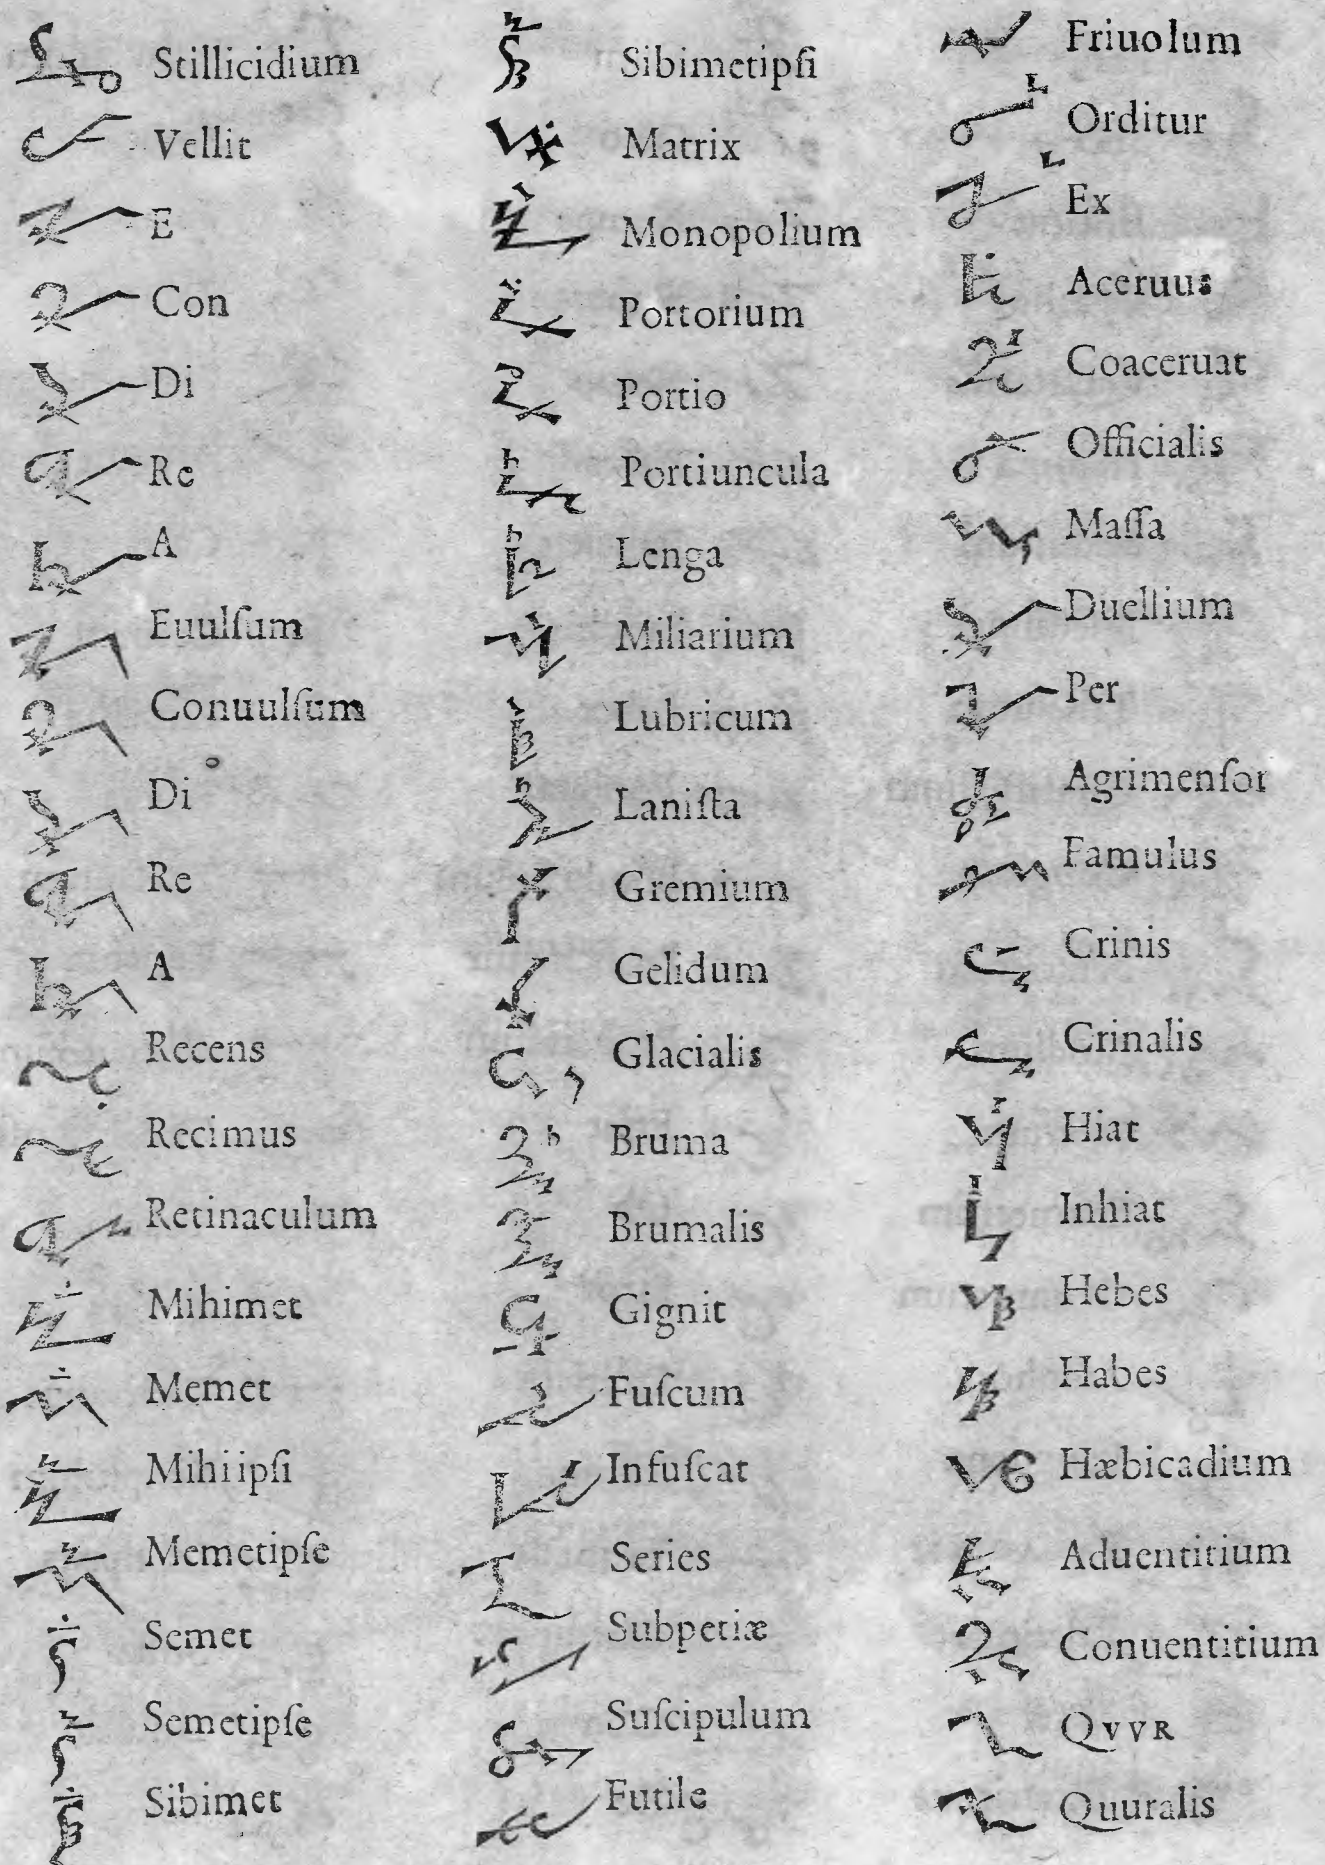 Stillicidium
Vellit
E
Con
Di
Re
A
Euulſum
Conuulſum
Di
Re
A
Recens
Recimus
Retinaculum
Mihimet
Memet
Mihiipſi
Memetipſe
Semet
Semetipſe
Sibimet
Sibimetipſi
Matrix
Monopolium
Portorium
Portio
Portiuncula
Lenga
Miliarium
Lubricum
Laniſta
Gremium
Gelidum
Glacialis
Bruma
Brumalis
Gignit
Fuſcum
Infuſcat
Series
Subpetiæ
Suſcipulum
Futile
Friuolum
Orditur
Ex
Aceruus
Coaceruat
Officialis
Maſſa
Duellium
Per
Agrimenſor
Famulus
Crinis
Crinalis
Hiat
Inhiat
Hebes
Habes
Hæbicadium
Aduentitium
Conuentitium
QVVR
Quuralis